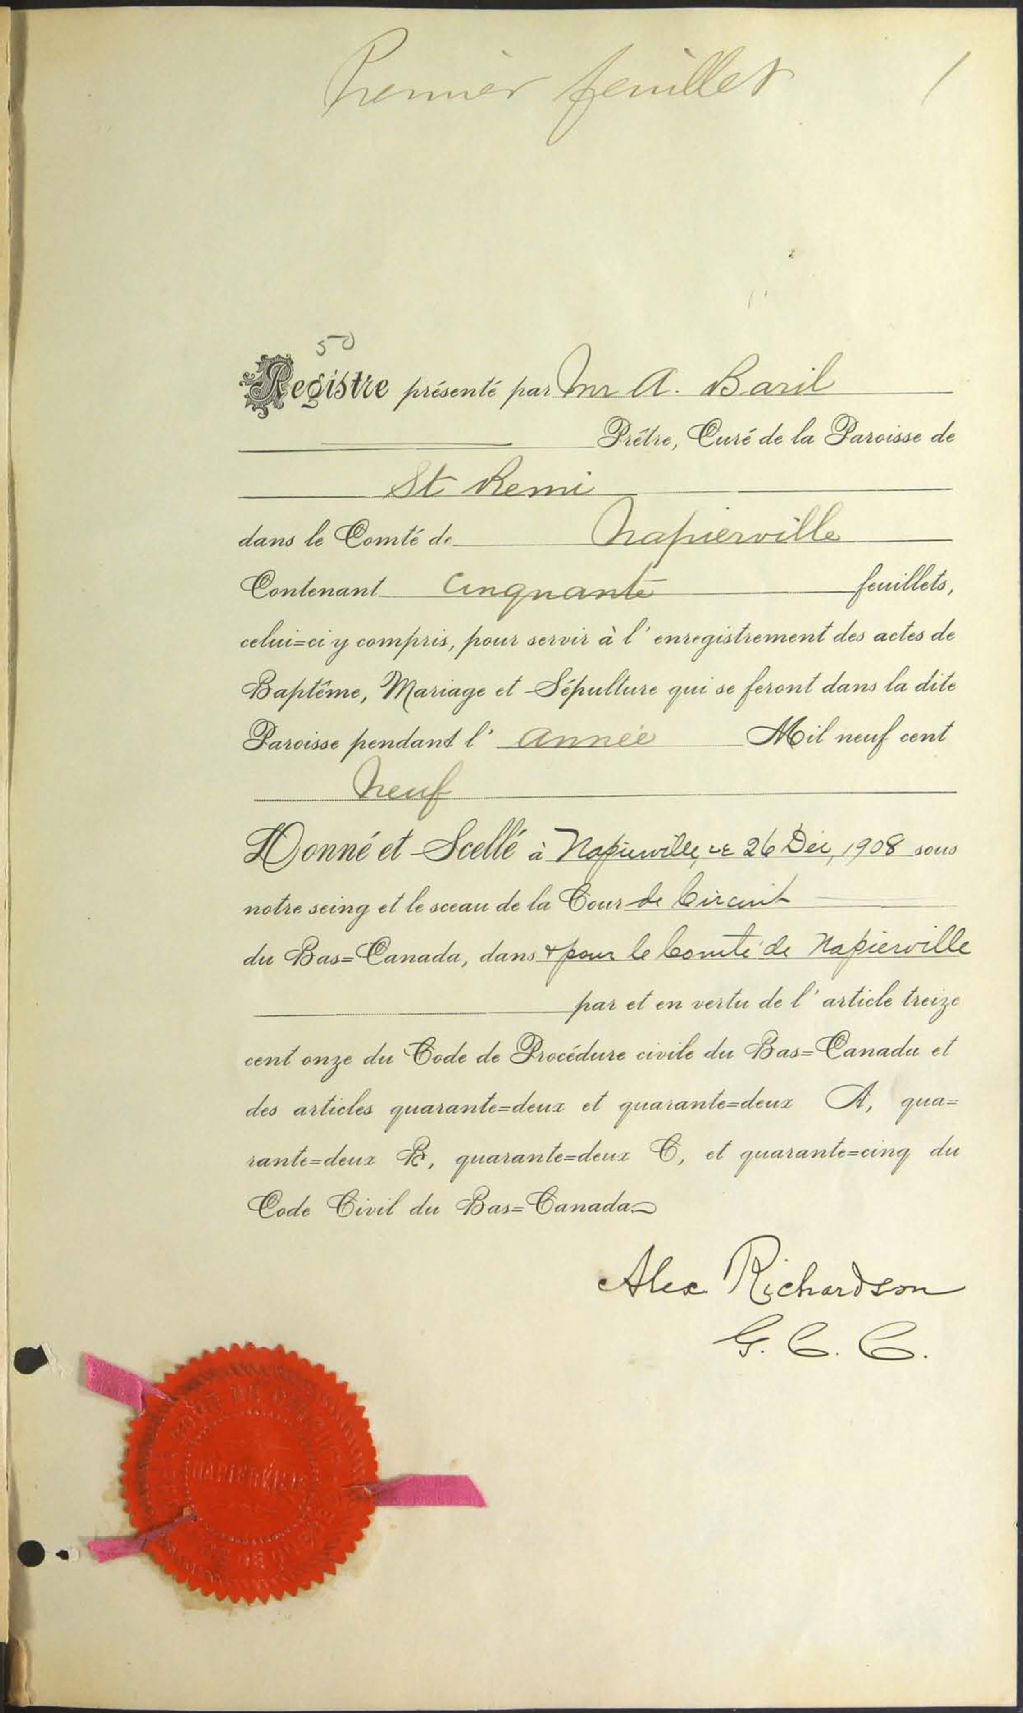 Premier feuillet 1
50
Registre présenté par Mr A. Baril
Prêtre, Curé de la Paroisse de
St Remi
dans le Comté de Napierville
Contenant cinquante feuillets,
celui=ci y compris, pour servir à l'enregistrement des actes de
Baptême, Mariage et Sépulture qui se feront dans la dite
Paroisse pendant l'année Mil neuf cent
Neuf
Donné et Scellé à Napierville, ce 26 Dec, 1908 sous
notre seing et le sceau de la Cour de Circuit
du Bas=Canada, dans & pour le Comté de Napierville
par et en vertu de l'article treize
cent onze du Code de Procédure civile du Bas=Canada et
des articles quarante=deux et quarante=deux A, qua=
rante=deux B, quarante=deux C, et quarante=cinq du
Code Civil du Bas=Canada
Alex Richardson
G. C. C.
NAPIERVILLE